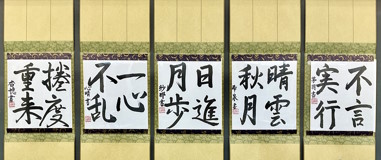 不言
実行
晴雲
秋月
日進
月歩
一心
不乱
捲度
重来